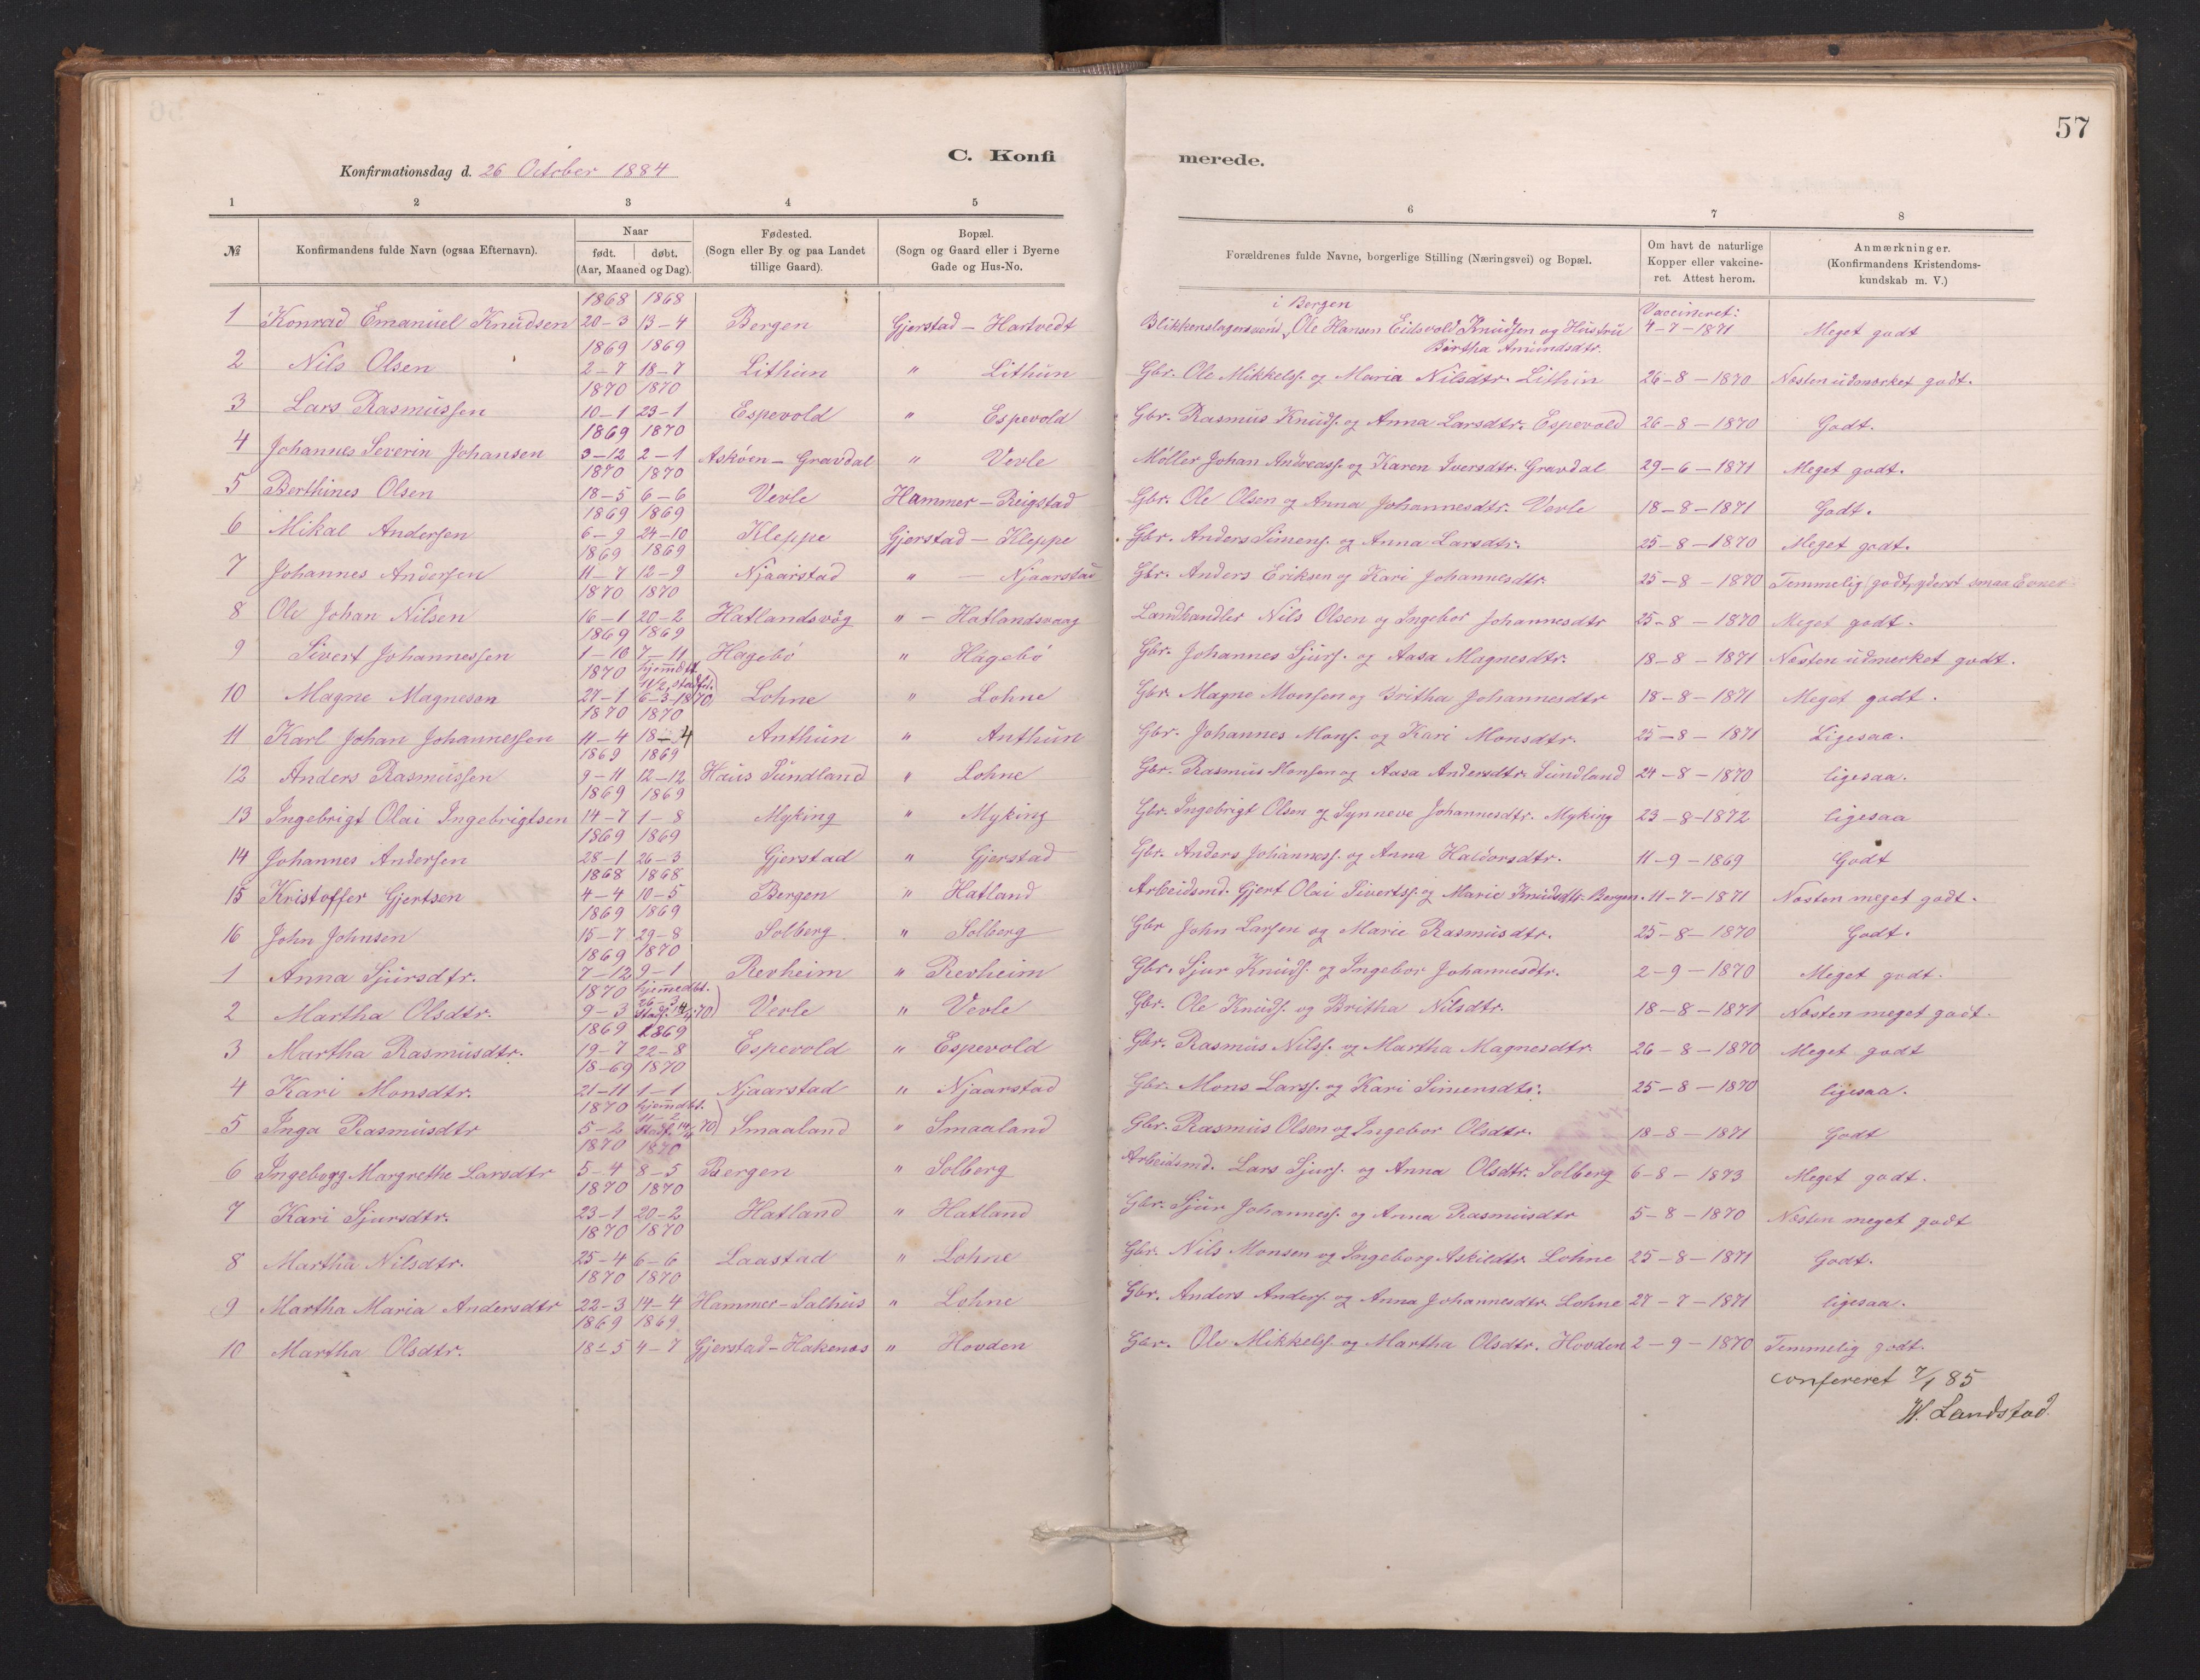 57
C. Konfi merede.
Konfirmationsdag d. 26 October 1884
1 2 3 4 5 6 7 8
№ Konfirmandens fulde Navn (ogsaa Efternavn). Naar født. døbt. (Aar, Maaned og Dag). Fødested. (Sogn eller By og paa Landet tillige Gaard). Bopæl. (Sogn og Gaard eller i Byerne Gade og Hus-No. Forældrenes fulde Navne, borgerlige Stilling (Næringsvei) og Bopæl. Om havt de naturlige Kopper eller vakcineret. Attest herom. Anmærkninger. (Konfirmandens Kristendomskundskab m. V.)
1 Konrad Emanuel Knudsen 1868 20-3 1868 13-4 Bergen Gjerstad - Hartvedt Blikkenslagersvend i Bergen Ole Hansen Eidsvold Knudsen og Hustru Birtha Amundsdtr. Vaccineret: 4-7-1871 Meget godt
2 Nils Olsen 1869 2-7 1869 18-7 Lithun " Lithun Gbr. Ole Mikkels. og Maria Nilsdtr. Lithun 26-8-1870 Næsten udmærket godt.
3 Lars Rasmussen 1870 10-1 1870 23-1 Espevold " Espevold Gbr. Rasmus Knuds. og Anna Larsdtr. Espevold 26-8-1870 Godt.
4 Johannes Severin Johansen 1869 3-12 1870 2-1 Askøen - Gravdal " Vevle Møller Johan Andreass. og Karen Iversdtr. Gravdal 29-6-1871 Meget godt.
5 Berthines Olsen 1870 18-5 1870 6-6 Vevle Hammer - Reigstad Gbr. Ole Olsen og Anna Johannesdtr. Vevle 18-8-1871 Godt.
6 Mikal Andersen 1869 6-9 1869 24-10 Kleppe Gjerstad - Kleppe Gbr. Anders Simens. og Anna Larsdtr. 25-8-1870 Meget godt.
7 Johannes Andersen 1869 11-7 1869 12-9 Njaarstad " - Njaarstad Gbr. Anders Eriksen og Kari Johannesdtr. 25-8-1870 Temmelig godt, yderst smaa Evner
8 Ole Johan Nilsen 1870 16-1 1870 20-2 Hatlandsvåg " - Hatlandsvaag Landhandler Nils Olsen og Ingebor Johannesdtr 25-8-1870 Meget godt.
9 Sivert Johannessen 1869 1-10 1869 7-11 Hagebö " Hagebö Gbr. Johannes Sjurs. og Aasa Magnesdtr. 18-8-1871 Næsten udmerket godt.
10 Magne Magneson 1870 27-1 hjemdbt. 11/2, stadf. 6-3-1870) Lohne " Lohne Gbr. Magne Monsen og Britha Johannesdtr 18-8-1871 Meget godt.
11 Karl Johan Johannessen 1870 11-4 1870 18-4 Anthun " Anthun Gbr. Johannes Mons. og Kari Monsdtr. 25-8-1871 Ligesaa.
12 Anders Rasmussen 1869 9-11 1869 12-12 Haus Sundland " Lohne Gbr. Rasmus Monsen og Aasa Andersdtr. Sundland 24-8-1870 ligesaa.
13 Ingebrigt Olai Ingebrigtsen 1869 14-7 1869 1-8 Myking " Myking Gbr. Ingebrigt Olsen og Synneve Johannesdtr. Myking 23-8-1872 ligesaa
14 Johannes Andersen 1869 28-1 1869 26-3 Gjerstad " Gjerstad Gbr. Anders Johanness. og Anna Haldorsdtr. 11-9-1869 Godt
15 Kristoffer Gjertsen 1868 4-4 1868 10-5 Bergen " Hatland Arbeidsmd. Gjert Olai Siverts. og Marie Knudsdtr. Bergen. 11-7-1871 Næsten meget godt.
16 John Johnsen 1869 15-7 1869 29-8 Solberg " Solberg Gbr John Larsen og Marie Rasmusdtr. 25-8-1870 Godt.
1 Anna Sjursdtr. 1869 7-12 1870 9-1 Revheim " Revheim Gbr. Sjur Knuds. og Ingebor Johannesdtr. 2-9-1870 Meget godt.
2 Martha Olsdtr. 1870 9-3 hjemmedbt. 26-3 Stadf. 70) Vevle " Vevle Gbr. Ole Knuds. og Britha Nilsdtr. 18-8-1871 Næsten meget godt.
3 Martha Rasmusdtr. 1869 19-7 1869 22-8 Espevold " Espevold Gbr. Rasmus Nils. og Martha Magnesdtr. 26-8-1870 Meget godt
4 Kari Monsdtr. 18-69 21-11 1870 1-1 Njaarstad " Njaarstad Gbr. Mons Lars. og Kari Simensdtr. 25-8-1870 ligesaa.
5 Inga Rasmusdtr 1870 5-2 hjemdbt. 11-2 Stadf. 14/4 70) Smaaland " Smaaland Gbr. Rasmus Olsen og Ingebor Olsdtr. 18-8-1871 Godt
6 Ingeborg Margrethe Larsdtr 1870 5-4 1870 8-5 Bergen " Solberg Arbeidsmd. Lars Sjurs. og Anna Olsdtr. Solberg 6-8-1873 Meget godt.
7 Kari Sjursdtr. 1870 23-1 1870 20-2 Hatland " Hatland Gbr. Sjur Johanness. og Anna Rasmusdtr 5-8-1870 Næsten meget godt
8 Martha Nilsdtr. 1870 25-4 1870 6-6 Laastad " Lohne Gbr. Nils Monsen og Ingeborg Askildtr. Lohne 25-8-1871 Godt.
9 Martha Maria Andersdtr 1870 22-3 1870 14-4 Hammer - Salhus " Lohne Gbr. Anders Anders. og Anna Johannesdtr. Lohne 27-7-1871 ligesaa.
10 Martha Olsdtr. 1869 18-5 1869 4-7 Gjerstad - Hakenæs " Hovden Gbr. Ole Mikkels. og Martha Olsdtr. Hovden 2-9-1870 Temmelig godt.
confereret 7/1 85
W. Landstad.